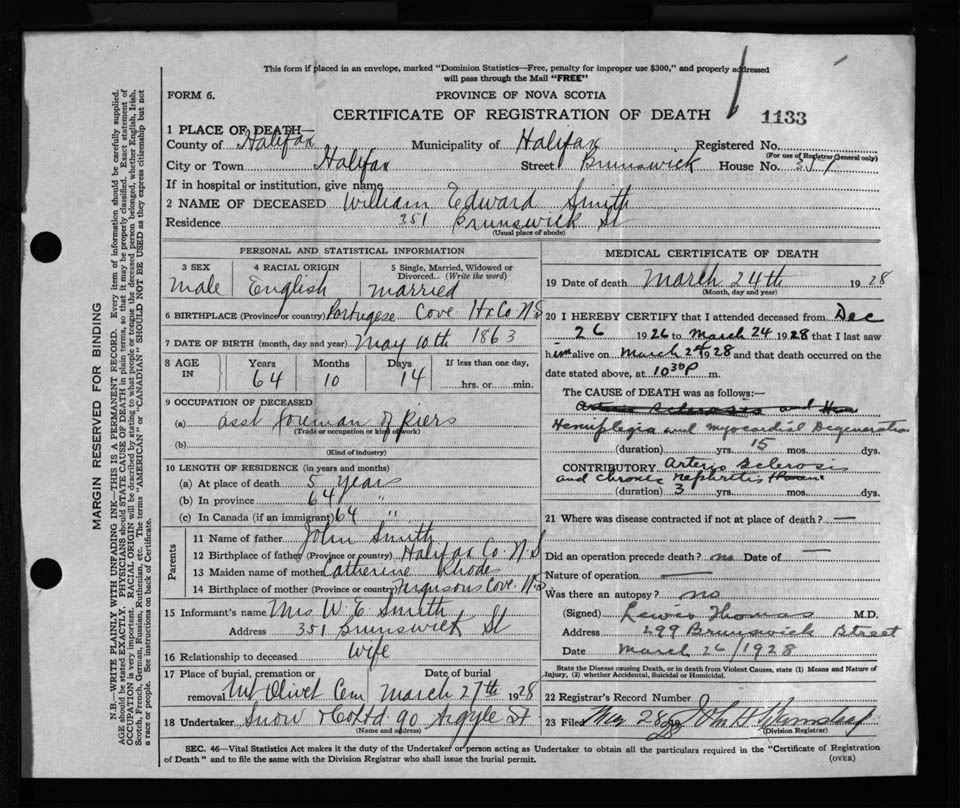 This form if placed in an envelope, marked "Dominion Statistics—Free, penalty for improper use $300," and properly addressed
will pass through the Mail "FREE"
FORM 6.
PROVINCE OF NOVA SCOTIA
CERTIFICATE OF REGISTRATION OF DEATH
1133
1 PLACE OF DEATH—
County of Halifax Municipality of Halifax Registered No.
(For use of Registrar General only)
City or Town Halifax Street Brunswick House No. 351
If in hospital or institution, give name
2 NAME OF DECEASED William Edward Smith
Residence 351 Brunswick St
(Usual place of abode)
PERSONAL AND STATISTICAL INFORMATION
3 SEX 4 RACIAL ORIGIN 5 Single, Married, Widowed or Divorced.. (Write the word)
Male English married
6 BIRTHPLACE (Province or country) Portugese Cove Hx Co N.S
7 DATE OF BIRTH (month, day and year) May 10th 1863
8 AGE IN Years Months Days If less than one day,
64 10 14 hrs. or min.
9 OCCUPATION OF DECEASED
(a) asst foreman of piers
(Trade or occupation or kind of work)
(b)
(Kind of industry)
10 LENGTH OF RESIDENCE (in years and months)
(a) At place of death 5 years
(b) In province 64 "
(c) In Canada (if an immigrant) 64 "
Parents
11 Name of father John Smith
12 Birthplace of father (Province or country) Halifax Co. N.S
13 Maiden name of mother Catherine Rhode
14 Birthplace of mother (Province or country) Fergusons Cove. N.S
15 Informant's name Mrs W. E. Smith
Address 351 Brunswick St
16 Relationship to deceased wife
17 Place of burial, cremation or removal Date of burial
Mt Olivet Cem March 27th 1928
18 Undertaker Snow & Co Ltd 90 Argyle St
(Name and address)
MEDICAL CERTIFICATE OF DEATH
19 Date of death March 24th 1928
(Month, day and year)
20 I HEREBY CERTIFY that I attended deceased from Dec
26 1926 to March 24 1928 that I last saw
him alive on March 24 1928 and that death occurred on the
date stated above, at 10 30 P m.
The CAUSE OF DEATH was as follows:—
Arterio Sclerosis and
Hemiplegia and myocardial Degeneration
(duration) 15 yrs. mos. dys.
CONTRIBUTORY Arterio Sclerosis
and chronic nephritis
(duration) 3 yrs. mos. dys.
21 Where was disease contracted if not at place of death? —
Did an operation precede death? no Date of —
Nature of operation —
Was there an autopsy? no
(Signed) Lewis Thomas M.D.
Address 299 Brunswick Street
Date March 26/1928
State the Disease causing Death, or in death from Violent Causes, state (1) Means and Nature of
Injury, (2) whether Accidental, Suicidal or Homicidal.
22 Registrar's Record Number
23 Filed 28
(Division Registrar)
SEC. 46—Vital Statistics Act makes it the duty of the Undertaker or person acting as Undertaker to obtain all the particulars required in the "Certificate of Registration
of Death" and to file the same with the Division Registrar who shall issue the burial permit.
(OVER)
MARGIN RESERVED FOR BINDING
N.B.—WRITE PLAINLY WITH UNFADING INK—THIS IS A PERMANENT RECORD. Every item of information should be carefully supplied.
AGE should be stated EXACTLY. PHYSICIANS should STATE CAUSE OF DEATH in plain terms, so that it may be properly classified. Exact statement of
OCCUPATION is very important. RACIAL ORIGIN will be described by stating to what people or tongue the deceased person belonged, whether English, Irish,
Scotch, French, German, Russian, Ruthenian, etc. The terms "AMERICAN" or "CANADIAN" SHOULD NOT BE USED as they express citizenship but not
a race or people. See instructions on back of Certificate.